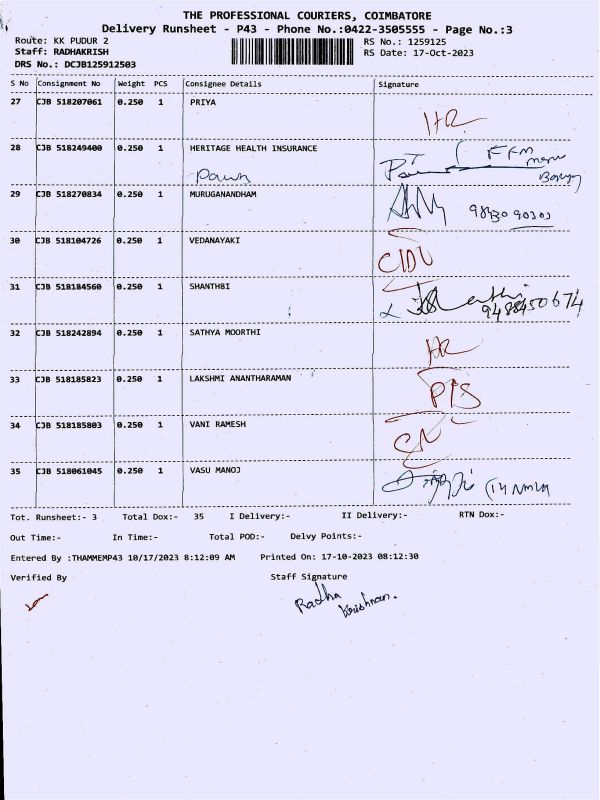 THE PROFESSIONAL COURIERS, COIMBATORE
Delivery Runsheet - P43 - Phone No.:0422-3505555 - Page No.:3
Route: KK PUDUR 2 RS No.: 1259125
Staff: RADHAKRISH RS Date: 17-Oct-2023
DRS No.: DCJB125912503
S No Consignment No Weight PCS Consignee Details Signature
27 CJB 518207061 0.250 1 PRIYA
HR
28 CJB 518249400 0.250 1 HERITAGE HEALTH INSURANCE
29 CJB 518270834 0.250 1 MURUGANANDHAM
98430 90303
30 CJB 518104726 0.250 1 VEDANAYAKI
31 CJB 518184560 0.250 1 SHANTHBI
9488450674
32 CJB 518242894 0.250 1 SATHYA MOORTHI
HR
33 CJB 518185823 0.250 1 LAKSHMI ANANTHARAMAN
34 CJB 518185803 0.250 1 VANI RAMESH
35 CJB 518061045 0.250 1 VASU MANOJ
Tot. Runsheet:- 3 Total Dox:- 35 I Delivery:- II Delivery:- RTN Dox:-
Out Time:- In Time:- Total POD:- Delvy Points:-
Entered By :THAMMEMP43 10/17/2023 8:12:09 AM Printed On: 17-10-2023 08:12:30
Verified By Staff Signature
Radha
Krishnan.